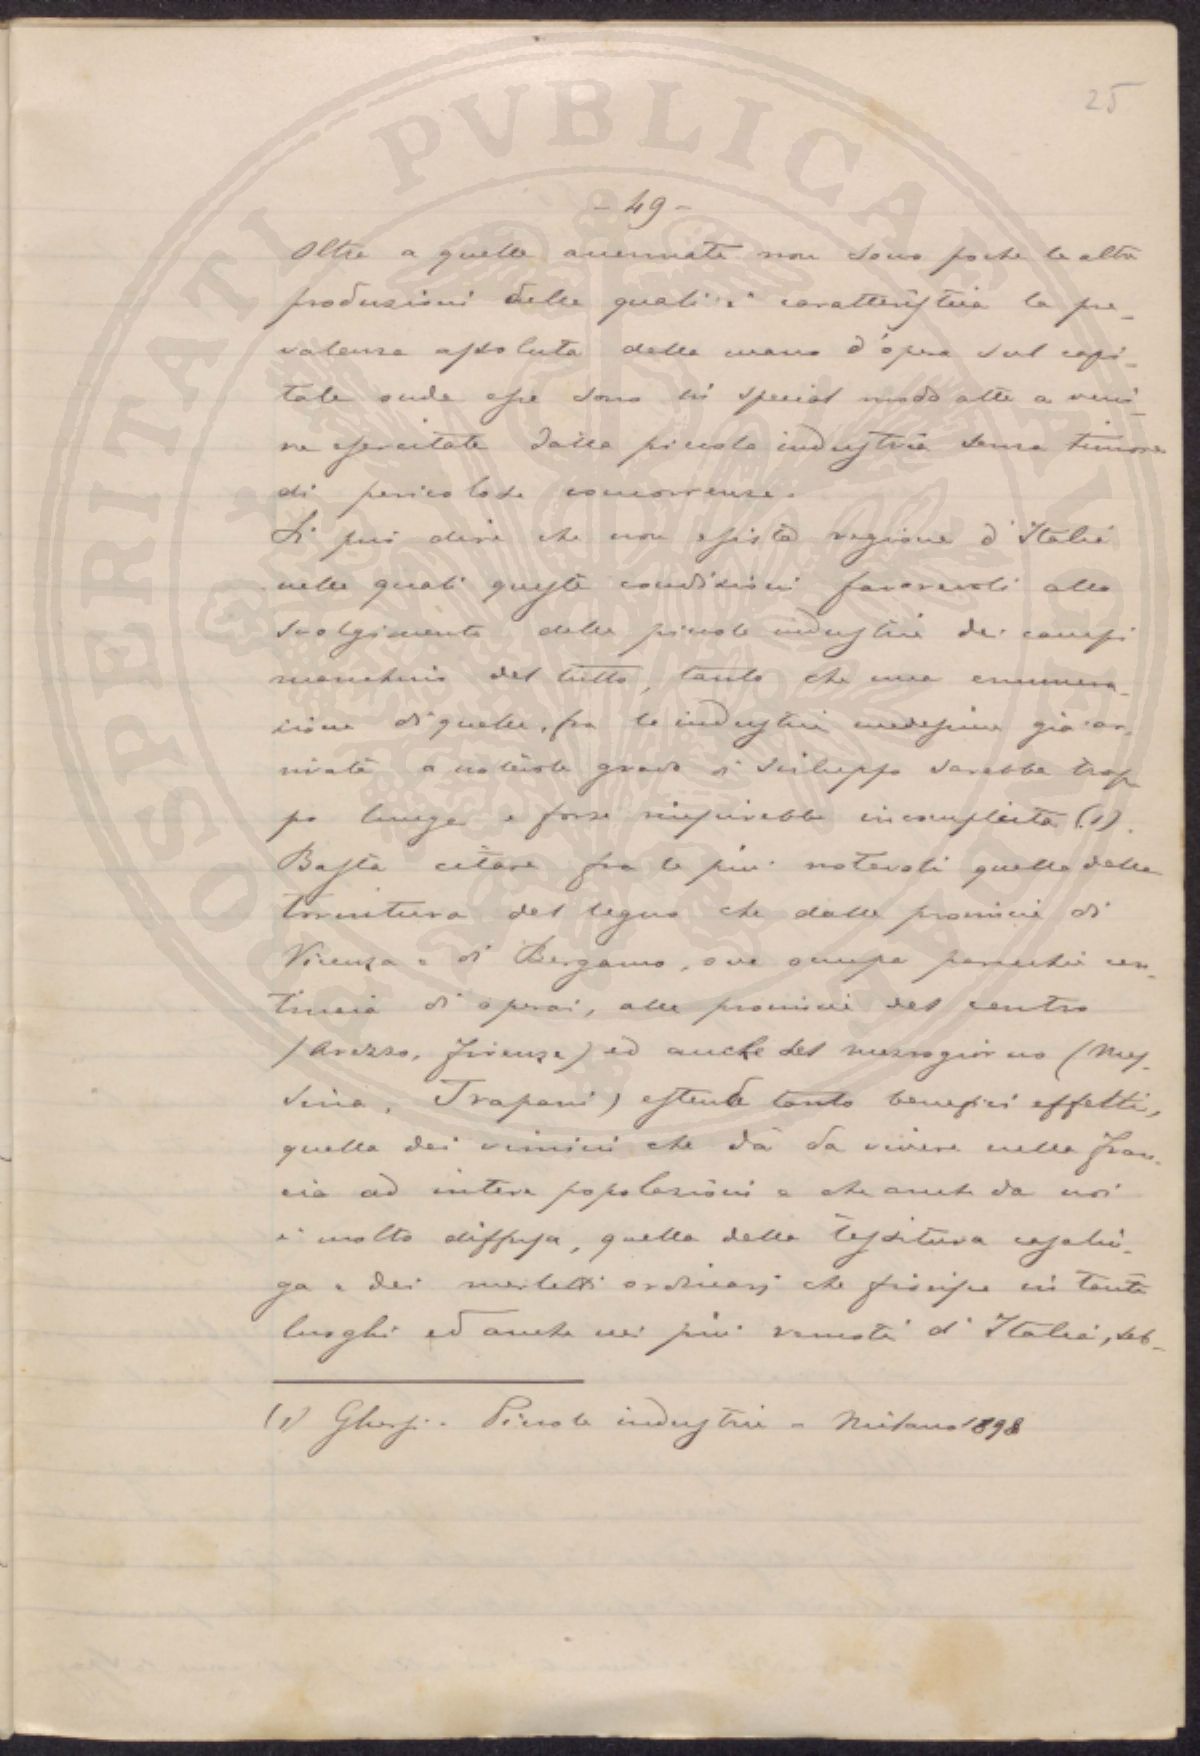 25
- 49 -
Oltre a quelle accennate non sono poche le altre
produzioni delle quali è caratteristica la pre-
valenza assoluta della mano d'opera sul capi-
tale onde esse sono in special modo atte a veni-
re esercitate dalla piccola industria senza timore
di pericolose concorrenze.
Si può dire che non esista regione d'Italia
nelle quali queste condizioni favorevoli allo
svolgimento delle piccole industrie dei campi
manchino del tutto, tanto che una enumera-
zione di quelle, fra le industrie medesime già ar-
rivate a notevole grado di sviluppo sarebbe trop
po lunga e forse riuscirebbe incompleta (1).
Basta citare fra le più notevoli quella della
tornitura del legno che dalle provincie di
Vicenza e di Bergamo, ove occupa parecchie cen-
tinaia di operai, alle provincie del centro
(Arezzo, Firenze) ed anche del mezzogiorno (Mes-
sina, Trapani) estende tanto benefici effetti,
quella dei vimini che dà da vivere nella Fran-
cia ad intere popolazioni e che anche da noi
è molto diffusa, quella della tessitura casalin-
ga e dei merletti ordinari che fiorisce in tanti
luoghi ed anche nei più remoti d'Italia, seb-
(1) Ghersi. Piccole industrie - Milano 1898
PROSPERITATI PVBLICAE